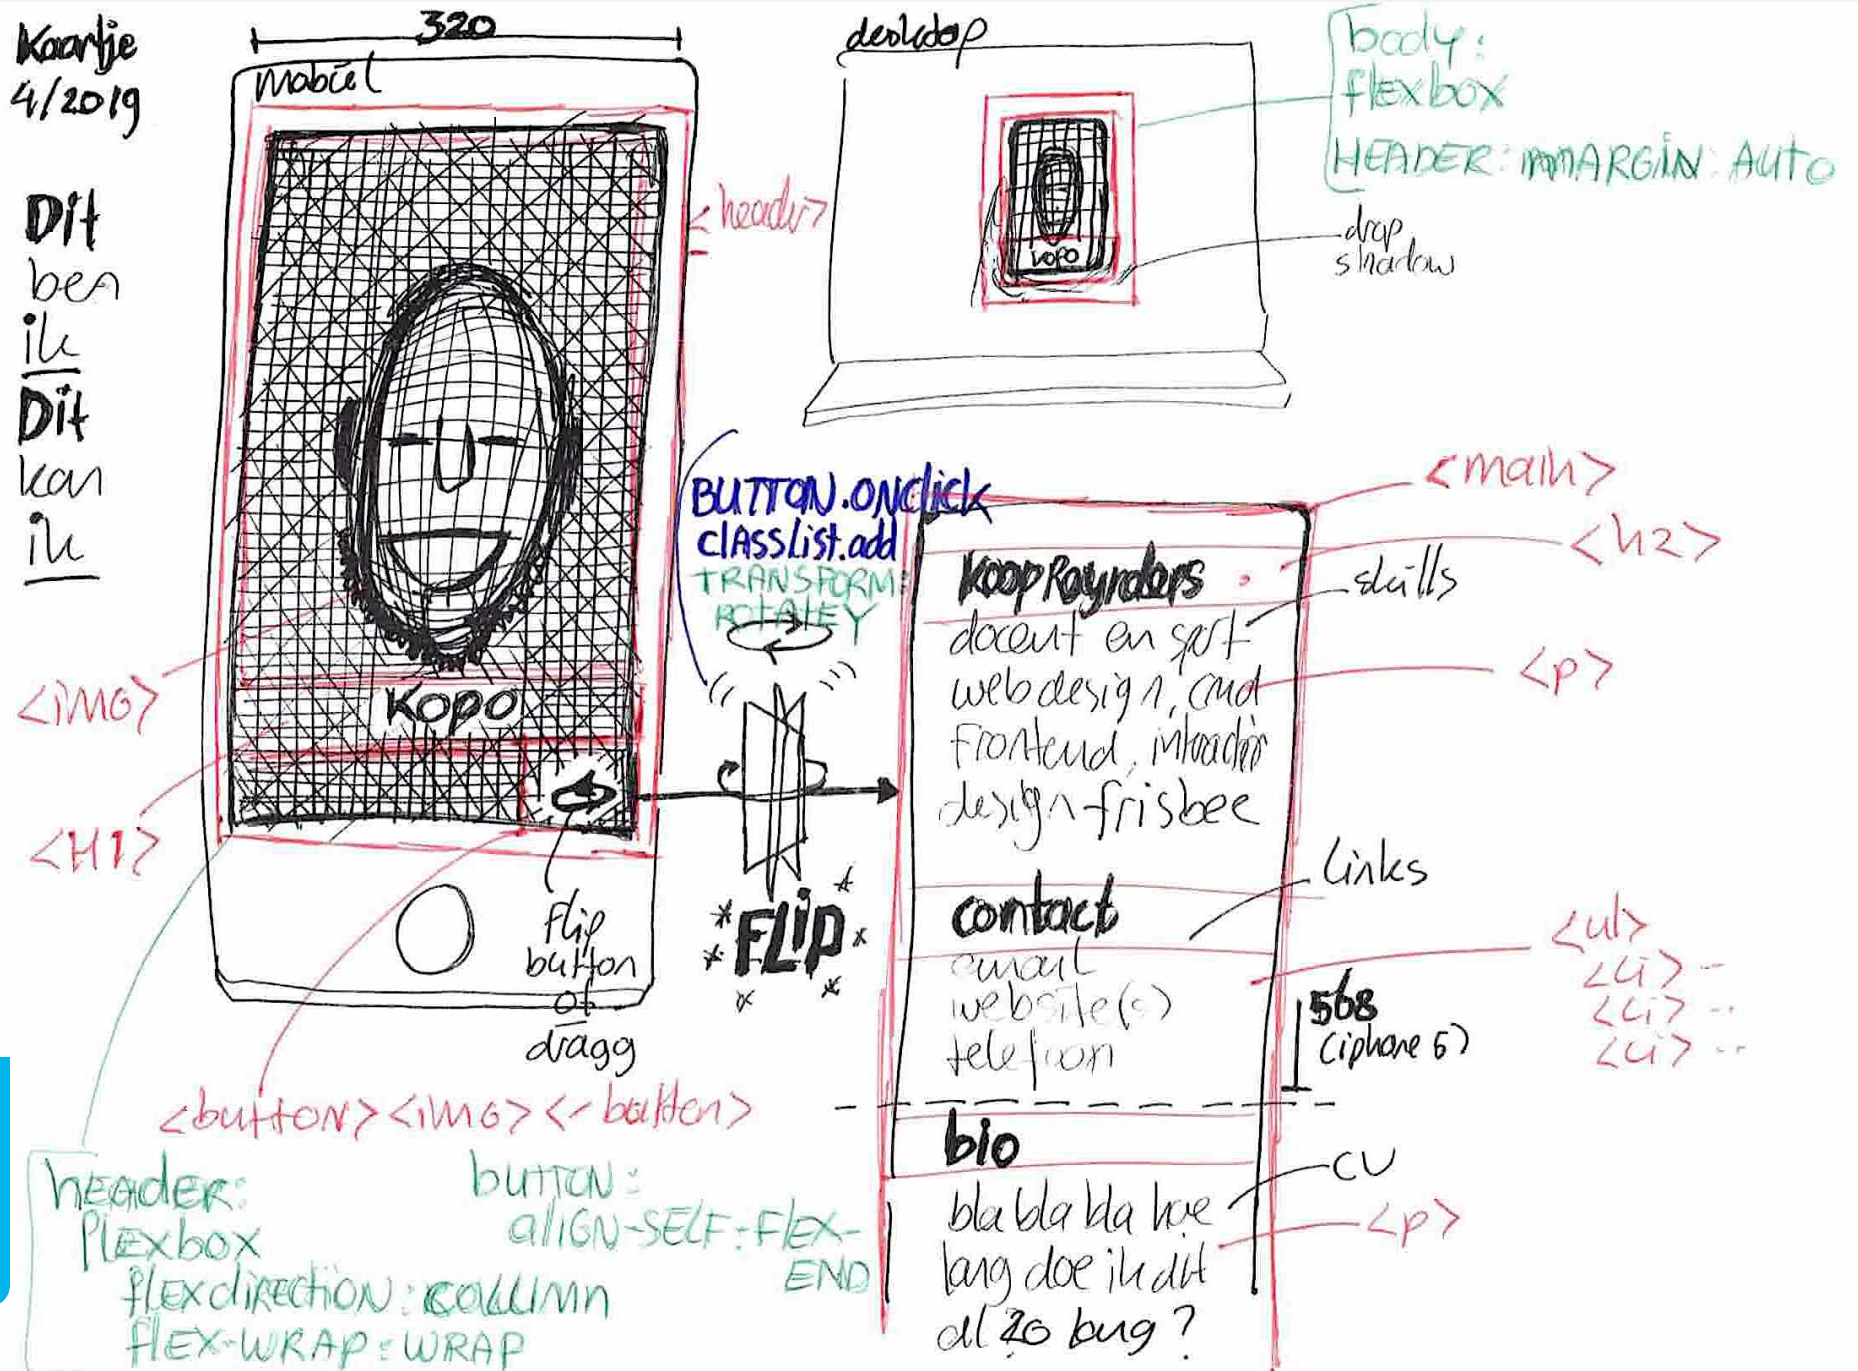 Kaartje
4/2019
Dit
ben
ik
Dit
kan
ik
320
mobiel
<header>
<img>
KOPO
<H1>
flip
button
of
dragg
<button><img><-button>
header:
flexbox
flexdirection: column
flex-wrap: wrap
button:
align-self: flex-
end
desktop
kopo
body:
flexbox
HEADER: MARGIN: AUTO
drop
shadow
BUTTON.ONclick
classlist.add
TRANSFORM:
ROTATEY
FLIP
<main>
<h2>
skills
<p>
docent en
webdesign, cmd
frontend,
design frisbee
contact
Links
email
website(s)
telefoon
<ul>
<li> -
<li> --
<li> --
568
(iphone 5)
bio
CV
bla bla bla hoe
lang doe ik dit
al zo lang?
<p>